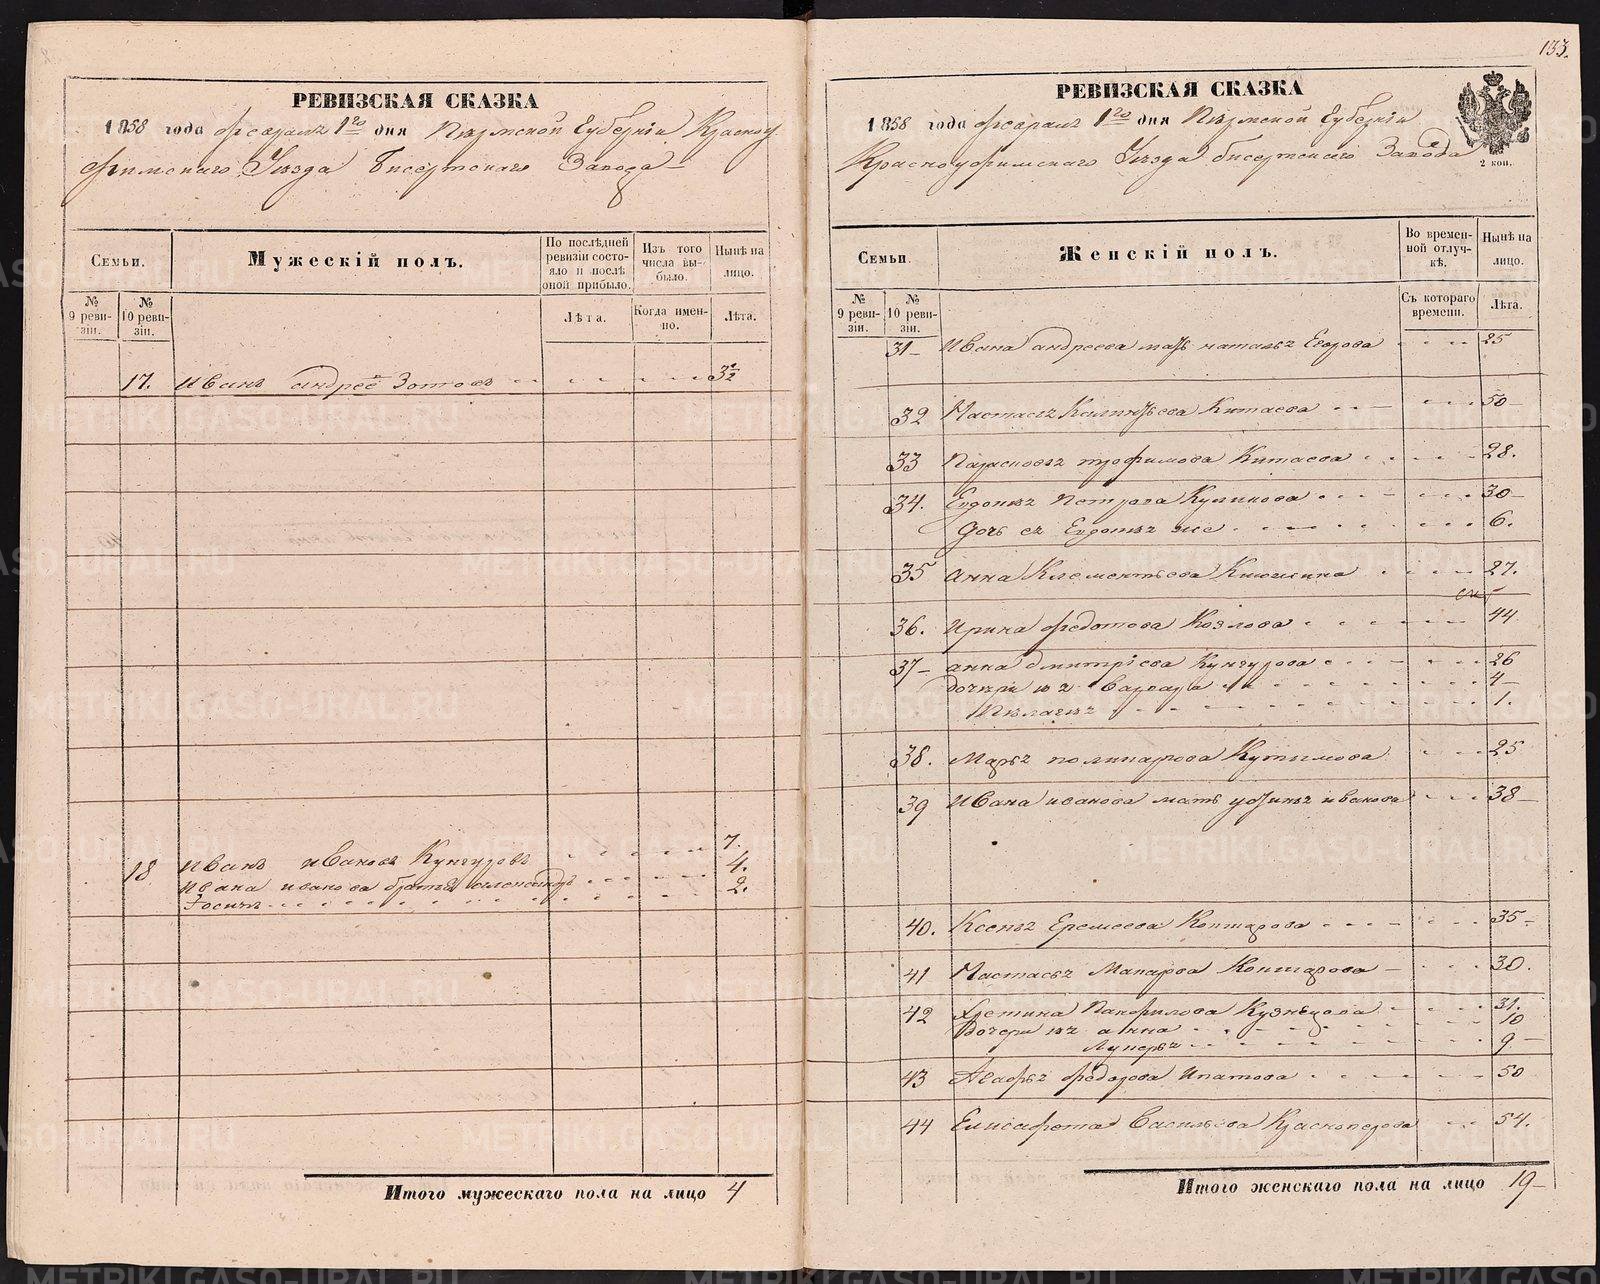 РЕВИЗСКАЯ СКАЗКА
1858 года февраля 1го дня Пермской Губерніи Красноу
фимскаго Уѣзда Бисертскаго Завода
Семьи.
Мужескій полъ.
По послѣдней ревизіи состояло и послѣ оной прибыло.
Изъ того числа выбыло.
Нынѣ на лицо.
№ 9 ревизіи.
№ 10 ревизіи.
Лѣта.
Когда именно.
Лѣта.
17. Иванъ Андреев Зотовъ
18 Иванъ Ивановъ Кунгуровъ 7.
Ивана Иванова братья Александръ 4.
Іосифъ 2.
Итого мужескаго пола на лицо 4
133.
РЕВИЗСКАЯ СКАЗКА
1858 года февраля 1го дня Пермской Губерніи
Красноуфимскаго Уѣзда Бисертскаго Завода
2 коп.
Семьи.
Женскій полъ.
Во временной отлучкѣ.
Нынѣ на лицо.
№ 9 ревизіи.
№ 10 ревизіи.
Съ котораго времени.
Лѣта.
31 Ивана Андреева мать Наталья Егорова 25
32 Настасья Китаева 50
33 Парасковья Трофимова Китаева 28.
34. Евдокия Петрова Куликова 30
Дочь ея Евдокия же 6.
35 Анна Клементьева 27.
36. Ирина Федотова Козлова 44
37 Анна Дмитріева Кунгурова 26
дочери ея Варвара 4
Пелагея 1.
38. Марья Поликарпова Кутымова 25
39 Ивана Иванова мать Устинья Иванова 38
40. Ксенья Еремеева 35
41 Настасья Макарова 30.
42 Хретина Панфилова Кузнецова 31.
Дочери ея Анна 10
Лукерья 9
43 Федорова Ипатова 50
44 Елисафета Васильева Красноперова 54.
Итого женскаго пола на лицо 19
METRIKI.GASO-URAL.RU